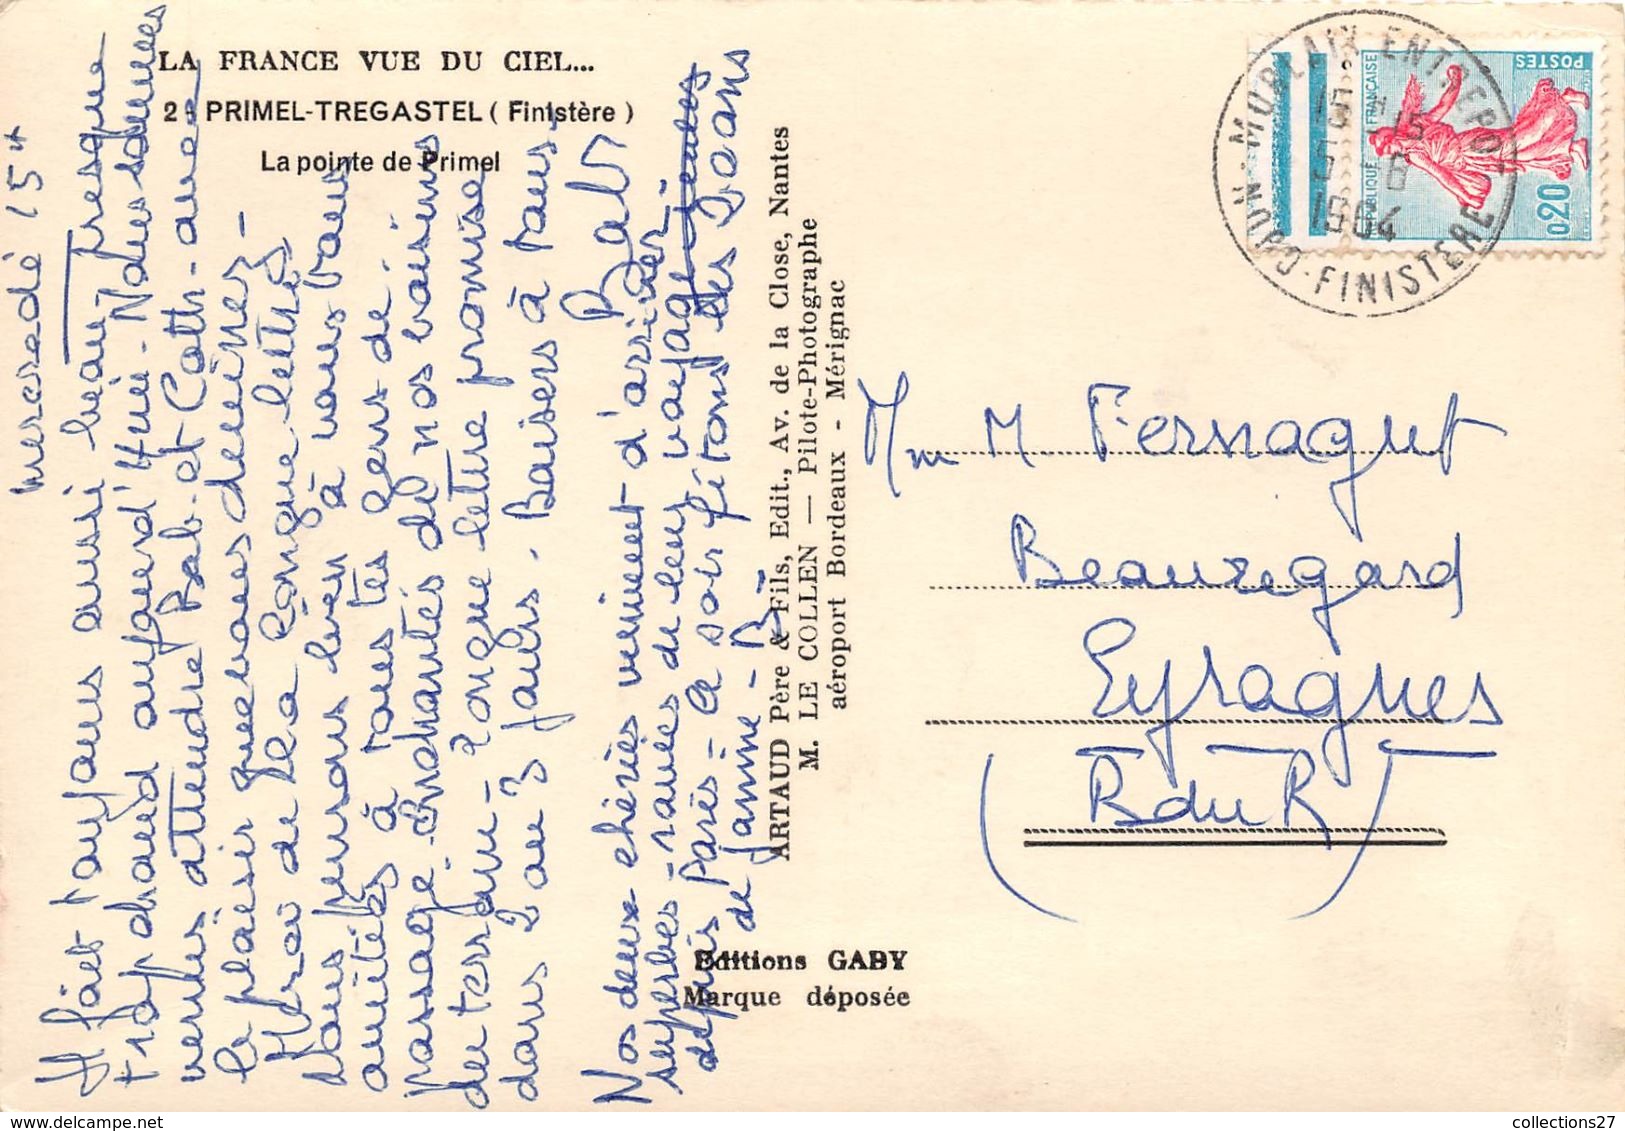 LA FRANCE VUE DU CIEL...
29 PRIMEL-TREGASTEL (Finistère)
La pointe de Primel
mercredi 15 H
Il fait toujours aussi beau presque
trop chaud aujourd'hui - Nous sommes
venus attendre Bab. et Cath. avec
le plaisir que vous devinez -
Merci de la longue lettre -
Nous pensons bien à vous tous
amitiés à tous les gens de
passage. Enchantés de nos voisins
du terrain - longue lettre promise
dans 2 ou 3 jours. Baisers à tous -
Bab
Nos deux chéries viennent d'arriver
superbes - ravies de leur voyage
depuis Paris - Ce soir fêtons les Jeans
de Janine - B -
ARTAUD Père & Fils, Edit., Av. de la Close, Nantes
M. LE COLLEN — Pilote-Photographe
aéroport Bordeaux - Mérignac
Editions GABY
Marque déposée
MORLAIX ENTREPOT
15 H 15
5 - 8
1964
NORD-FINISTERE
REPUBLIQUE FRANÇAISE
POSTES
0,20
Mm M. Fernagut
Beauregard
Eyragues
(B du R)
collections27